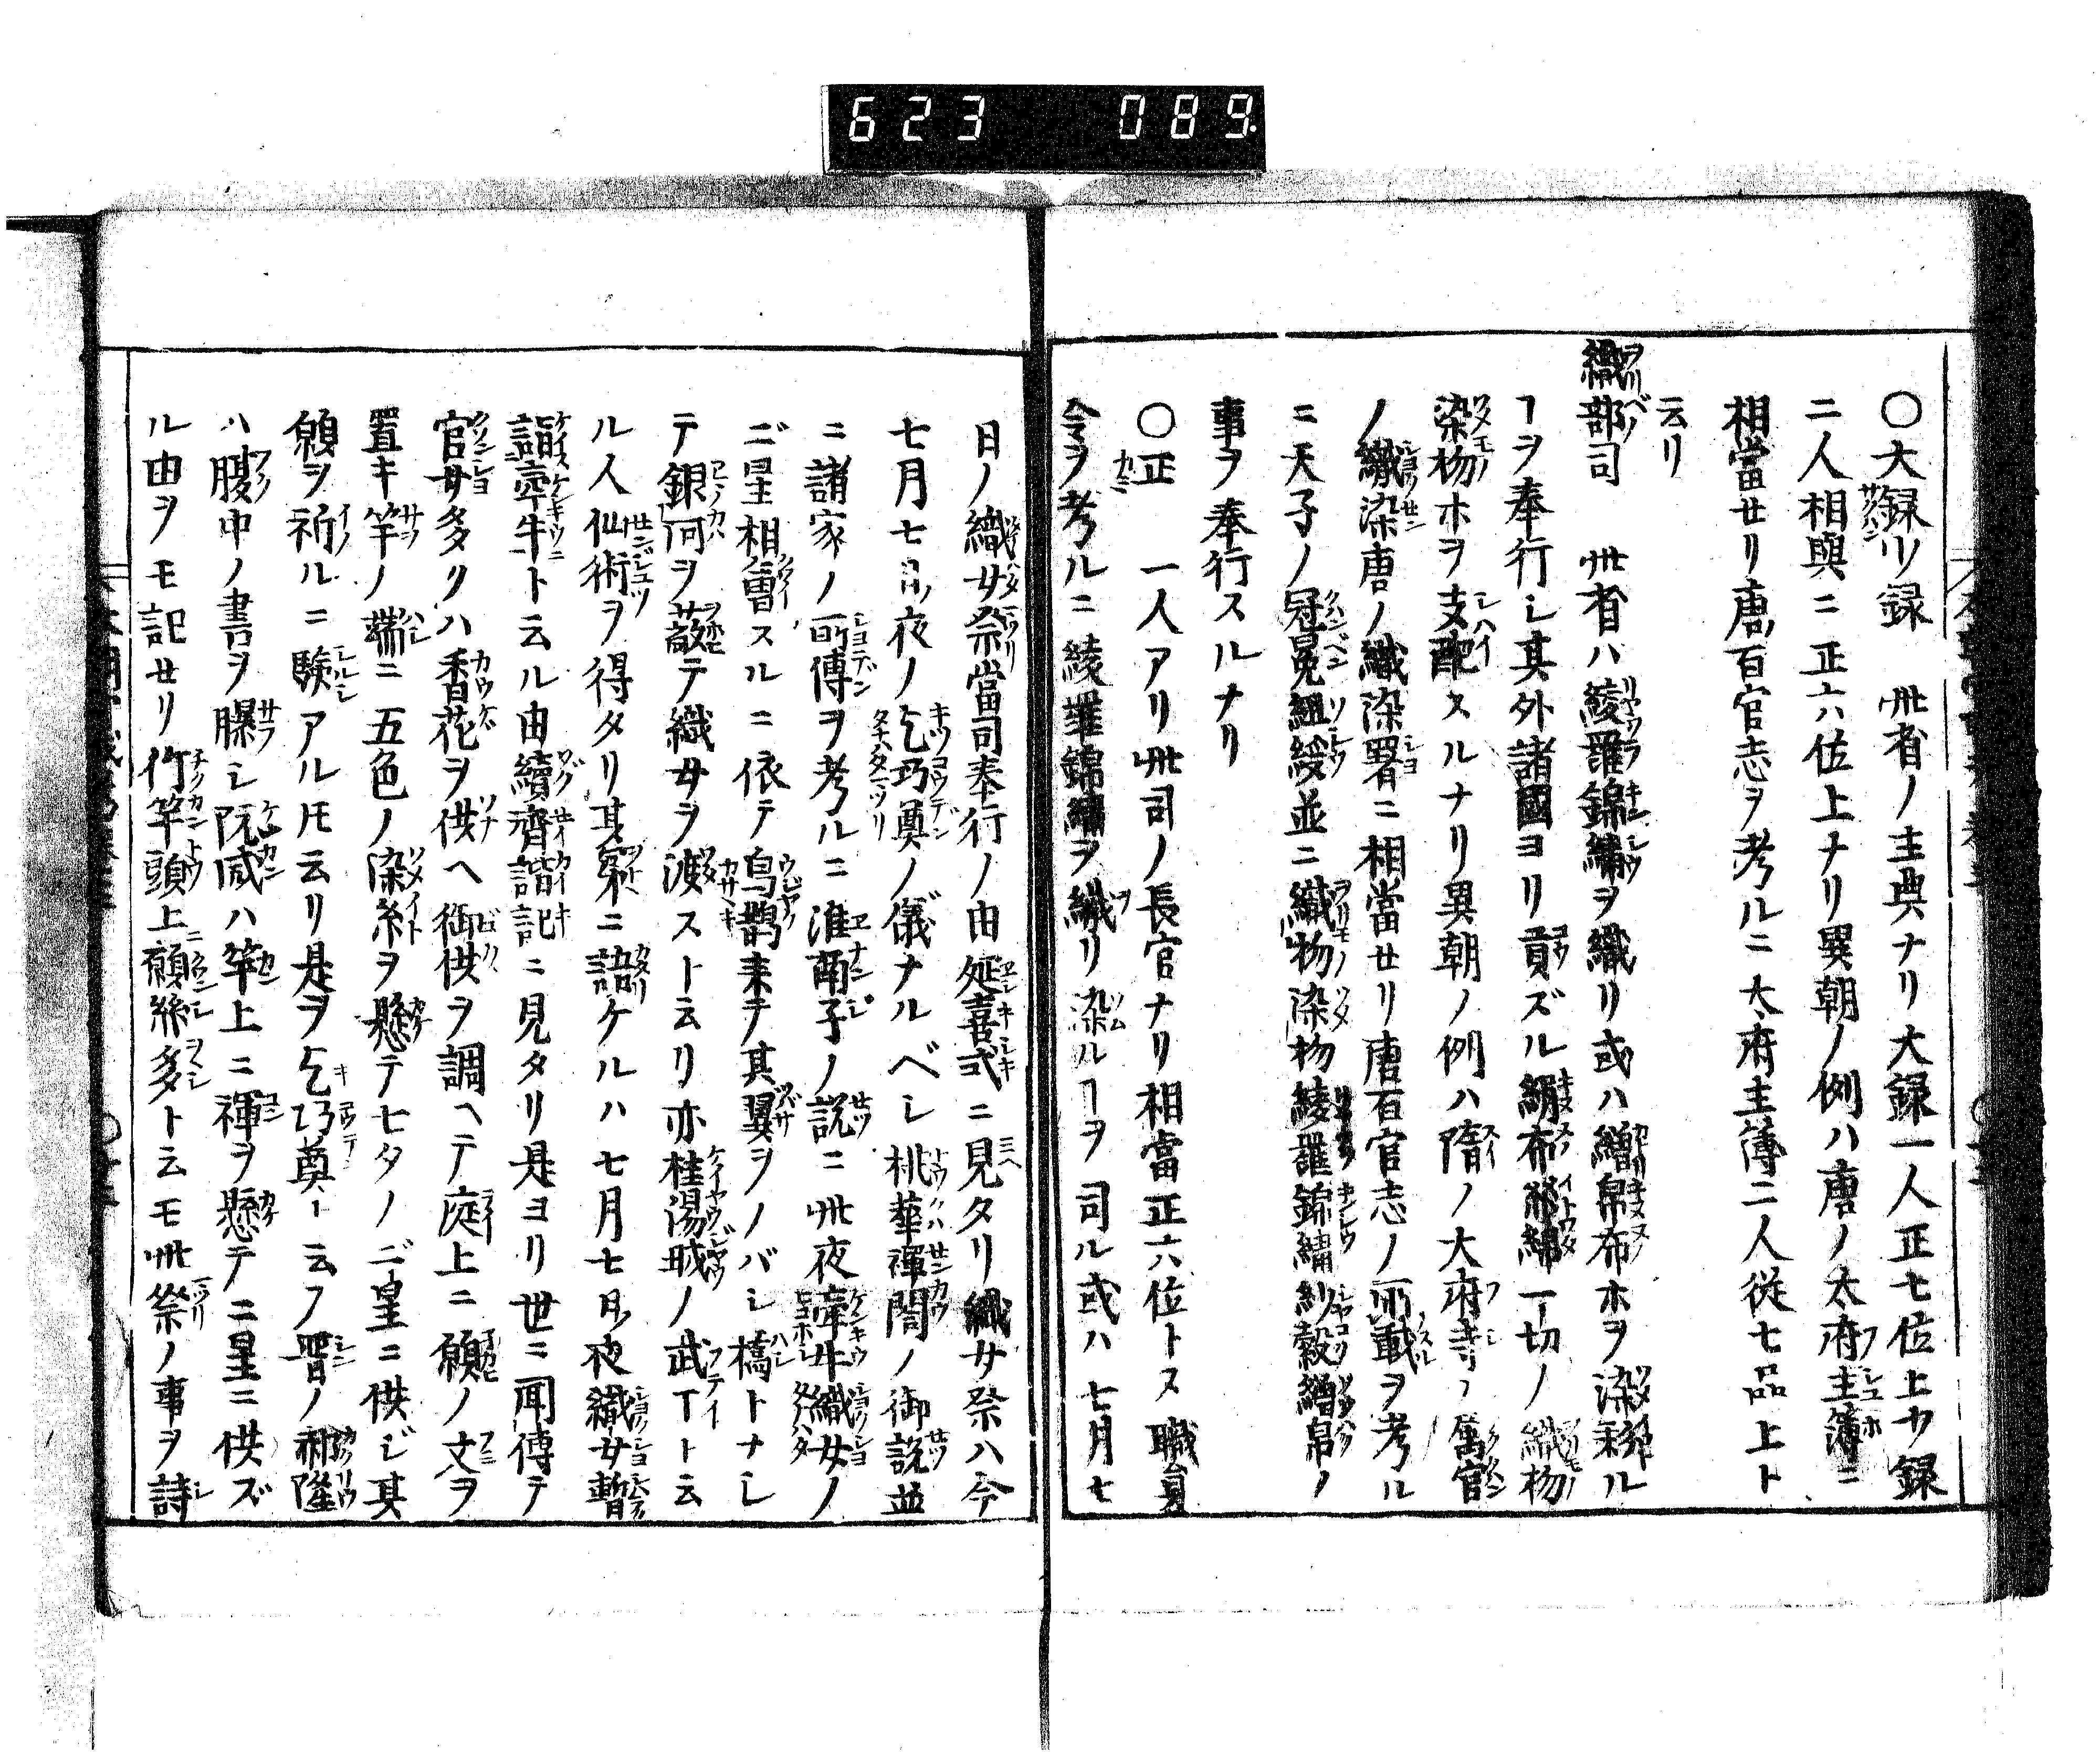 623 089
○大録サクハン 少録 此省ノ主典ナリ大録一人正七位上少録
二人相與ニ正六位上ナリ異朝ノ例ハ唐ノ太府主簿ニ
相當セリ唐百官志ヲ考ルニ太府主簿二人従七品上ト
云リ
織部司 此省ハ綾羅錦繡ヲ織リ或ハ繒帛布ホヲ染ル
ヿヲ奉行シ其外諸國ヨリ貢ズル絹布綿一切ノ織物
染物ホヲ支配スルナリ異朝ノ例ハ隋ノ大府寺ノ属官
ノ織染唐ノ織染署ニ相當セリ唐百官志ノ所載ヲ考ル
ニ天子ノ冠冕組綬並ニ織物染物綾羅錦繡紗縠繒帛ノ
事ヲ奉行スルナリ
○正カミ 一人アリ此司ノ長官ナリ相當正六位トス職員
令ヲ考ルニ綾羅錦繡ヲ織リ染ルヿヲ司ル或ハ七月七
日ノ織女祭當司奉行ノ由延喜式ニ見タリ織女祭ハ今
七月七日ノ夜ノ乞巧奠ノ儀ナルベシ桃華禪閤ノ御説並
ニ諸家ノ所傳ヲ考ルニ淮南子ノ説ニ此夜牽牛織女ノ
二星相會スルニ依テ烏鵲来テ其翼ヲノバシ橋トナシ
テ銀河ヲ蔽テ織女ヲ渡スト云リ亦桂陽城ノ武丁ト云
ル人仙術ヲ得タリ其弟ニ語ケルハ七月七日ノ夜織女暫
詣牽牛ト云ル由續齊諧記ニ見タリ是ヨリ世ニ聞傳テ
官女多クハ香花ヲ供ヘ御供ヲ調ヘテ庭上ニ願ノ文ヲ
置キ竿ノ端ニ五色ノ染糸ヲ懸テ七夕ノ二星ニ供ジ其
願ヲ祈ルニ験アルトモ云リ是ヲ乞巧奠ト云フ晋ノ郝隆
ハ腹中ノ書ヲ曝シ阮咸ハ竿上ニ褌ヲ懸テ二星ニ供ズ
ル由ヲモ記セリ竹竿頭上ニ願絲多ト云モ此祭ノ事ヲ詩